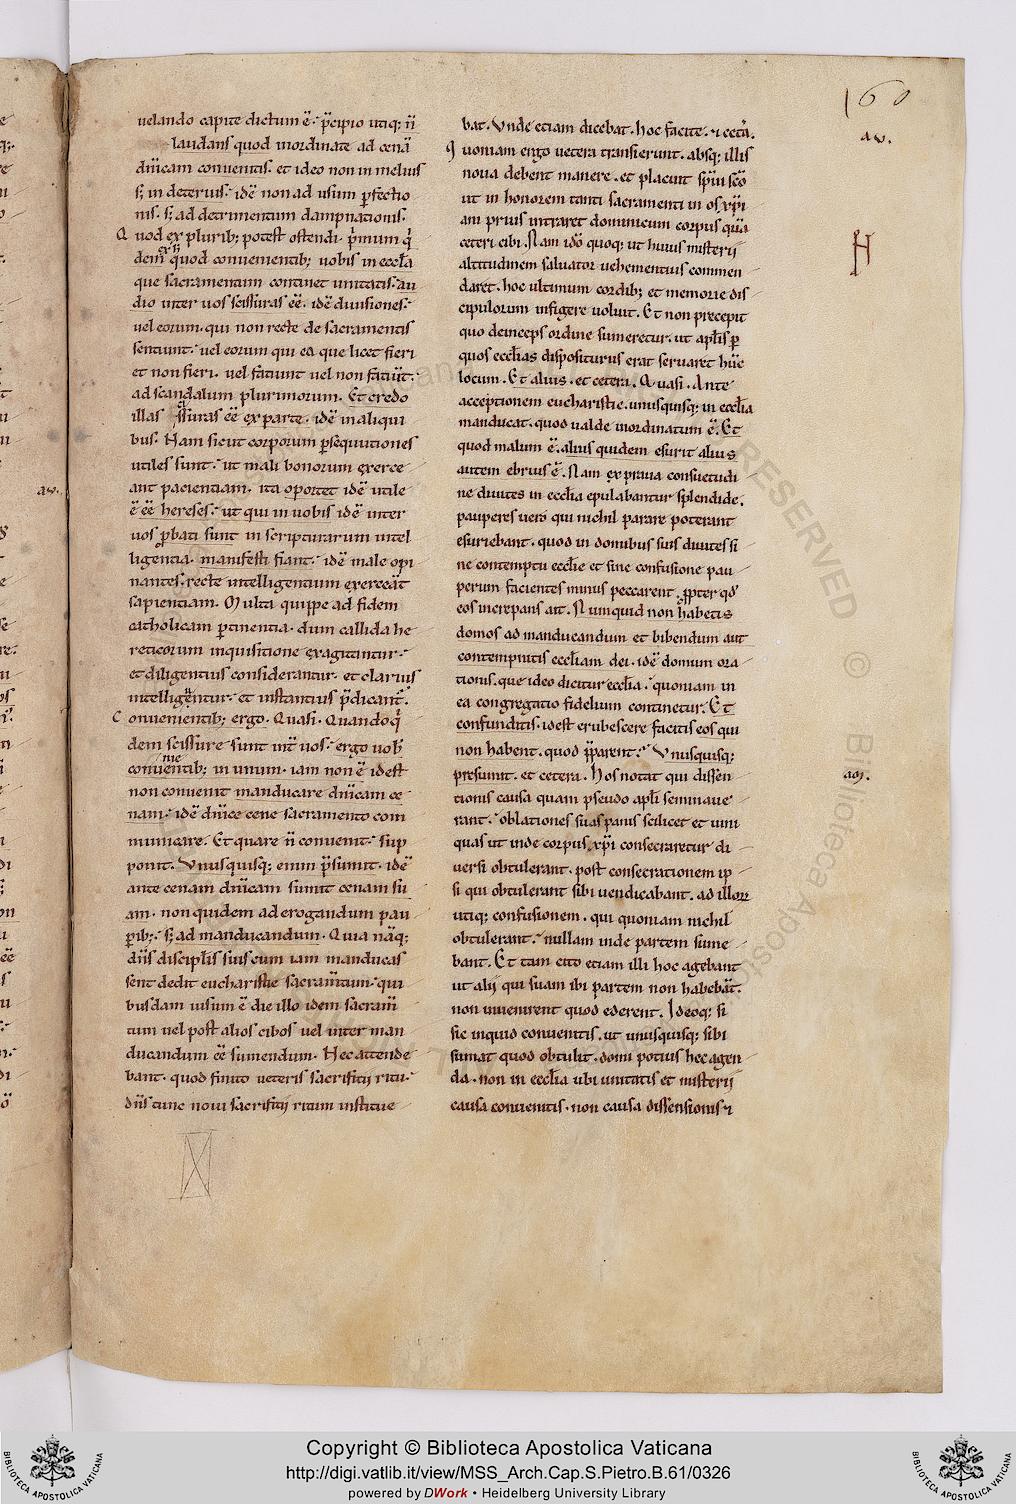 160
velando capite dictum ē. p̄cipio utiq; ñ
laudans quod inordinate ad cenā
dn̄icam convenitis. et ideo non in melius
s; in deterius. idē non ad usum p̄fectio
nis. s; ad detrimentum dampnationis.
Quod ex plurib; potest ostendi. p̄mum q̄
dem quod convenientib; vobis in eccl̄a
que sacramentum continet unitatis. au
dio inter vos scissuras eē. idē divisiones.
vel eorum. qui non recte de sacramentis
sentiunt. vel eorum qui ea que licet fieri
et non fieri. vel faciunt vel non faciūt.
ad scandalum plurimorum. Et credo
illas scissuras eē ex parte. idē in aliqui
bus. Nam sicut corporum p̄sequutiones
utiles sunt. ut mali bonorum exerce
ant pacientiam. ita oportet idē utile
ē eē hereses. ut qui in vobis idē inter
vos p̄bati sunt in scripturarum intel
ligentia. manifesti fiant. idē male opi
nantes. recte intelligentium exerceāt
sapientiam. Multa quippe ad fidem
catholicam p̄tinentia. dum callida he
reticorum inquisitione exagitantur.
et diligentius considerantur. et clarius
intelliguntur. et instantius p̄dicant̄.
Convenientib; ergo. Quasi. Quando q̄
dem scissure sunt int̄ vos. ergo vob̄
convenientib; in unum. iam non ē idest
non convenit manducare dn̄icam ce
nam. idē dn̄ice cene sacramento com
municare. Et quare ñ convenit. sup
ponit. Unusquisq; enim p̄sumit. idē
ante cenam dn̄icam sumit cenam su
am. non quidem ad erogandum pau
p̄ib;. s; ad manducandum. Quia nāq;
dn̄s discipl̄is suis cum iam manducas
sent dedit eucharistie sacram̄tum. qui
busdam visum ē die illo idem sacram̄
tum vel post alios cibos vel inter man
ducandum eē sumendum. Hec attende
bant. quod finito veteris sacrifitii ritu.
dn̄s tunc novi sacrifitii ritum institue
bat. Unde etiam dicebat. hoc facite. & cet̄a.
Quoniam ergo vetera transierunt. absq; illis
nova debent manere. et placuit sp̄ui sc̄o
ut in honorem tanti sacramenti in os xp̄i
ani prius intraret dominicum corpus quā
ceteri cibi. Nam idō quoq; ut huius misterii
altitudinem salvator vehementius commen
daret. hoc ultimum cordib; et memorie dis
cipulorum infigere voluit. Et non precepit
quo deinceps ordine sumeretur. ut apl̄is p̄
quos eccl̄ias dispositurus erat servaret hūc
locum. Et alius. et cetera. Quasi. Ante
acceptionem eucharistie. unusquisq; in eccl̄ia
manducat. quod valde inordinatum ē. Et
quod malum ē. alius quidem esurit alius
autem ebrius ē. Nam ex prava consuetudi
ne divites in eccl̄ia epulabantur splendide.
pauperes vero qui nichil parare poterant
esuriebant. quod in domibus suis divites si
ne contemptu eccl̄ie et sine confusione pau
perum facientes minus peccarent. p̄pter qd̄
eos increpans ait. Nunquid non habetis
domos ad manducandum et bibendum aut
contempnitis eccl̄iam dei. idē domum ora
tionis. que ideo dicitur eccl̄ia. quoniam in
ea congregatio fidelium continetur. Et
confunditis. idest erubescere facitis eos qui
non habent. quod p̄parent. Unusquisq;
presumit. et cetera. Hos notat qui dissen
tionis causa quam pseudo apl̄i seminave
rant. oblationes suas panis scilicet et vini
quas ut inde corpus xp̄i consecraretur di
versi obtulerant. post consecrationem ip
si qui obtulerant sibi vendicabant. ad illoꝝ
utiq; confusionem. qui quoniam nichil
obtulerant. nullam inde partem sume
bant. Et tam cito etiam illi hoc agebant
ut alii qui suam ibi partem non habebāt.
non invenirent quod ederent. Ideoq; si
sic inquid convenitis. ut unusquisq; sibi
sumat quod obtulit. domi potius hec agen
da. non in eccl̄ia ubi unitatis et misterii
causa convenitis. non causa dissensionis &
Copyright © Biblioteca Apostolica Vaticana
http://digi.vatlib.it/view/MSS_Arch.Cap.S.Pietro.B.61/0326
powered by DWork • Heidelberg University Library